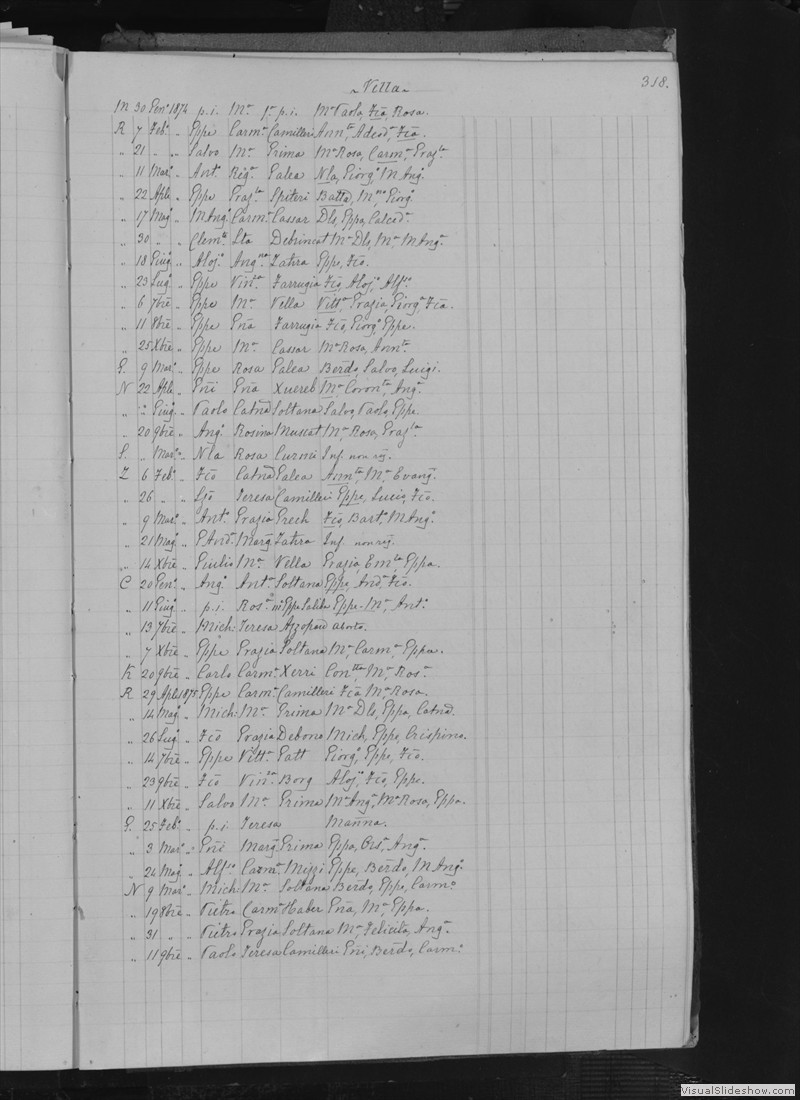 ~ Vella ~ 318.
M 30 Genº 1874 p.i. Mª fª p.i. Mª Paolo, Fcã, Rosa.
R 7 Febº „ Gppe Carmª Camilleri Annta, Adeodª, Fcã.
„ 21 „ „ Salvo Mª Grima Mª Rosa, Carmª Grazla
„ 11 Marº „ Antº Regª Galea Nla, Giorgª, M Angª
„ 22 Aple „ Gppe Grazla Spiteri Batta, Mna, Giorgº
„ 17 Magº „ M Angº Carmª Cassar Dls, Gppa, Calcedª
„ 30 „ „ Clemte Lta Debrincat Mª Dls, Mª M Angª
„ 18 Giugº „ Alojº Angna Zahra Gppe, Fcõ.
„ 23 Lugº „ Gppe Vinza Farrugia Fcõ, Alojº, Alfso
„ 6 7bre „ Gppe Mª Vella Vittª, Grazia, Giorgª, Fcã.
„ 11 8bre „ Gppe Gña Farrugia Fcõ, Giorgº, Gppe.
„ 25 Xbre „ Gppe Mª Cassar Mª Rosa, Annta
G. 9 Marº „ Gppe Rosa Galea Berdo, Salvo, Luigi.
N 22 Aple „ Gñi Gña Xuereb Mª, Coronta, Angª
„ Giugº „ Paolo Catna Soltana Salvo, Paolo, Gppe.
„ 20 9bre „ Angº Rosina Muscat Mª, Rosa, Grazla
S. „ Marº „ Nla Rosa Curmi Inf. non reg.
Z 6 Febº „ Fcõ Catna Galea Annta, Mª, Evang.
„ 26 „ „ Teresa Camilleri Gppe, Lucia, Fcõ.
„ 9 Marº „ Antº Grazia Grech Fcõ, Bartº, M Angº
„ 21 Magº „ P. Andª Marg Zahra Inf. non reg.
„ 14 Xbre „ Giulio Mª Vella Grazia, Emla, Gppa.
C 20 Genº „ Angº Antª Soltana Gppe, Andª, Fcõ.
„ 11 Giugº „ p.i. Rosª mº Gppe Saliba Gppe, Mª, Antº
„ 13 7bre „ Mich: Teresa Azzopardi aborto.
„ 7 Xbre „ Gppe Grazia Soltana Mª, Carmª Gppa.
K 20 9bre „ Carlo Carmª Xerri Conta, Mª, Rosª
R 29 Aple 1875 Gppe Carmª Camilleri Fcã, Mª Rosa.
„ 14 Magº „ Mich: Mª Grima Mª Dls, Gppa, Catna.
„ 26 Lugº „ Fcõ Grazia Debono Mich, Gppe, Crispino.
„ 14 7bre „ Gppe Vittª Gatt Giorgº, Gppe, Fcõ.
„ 23 9bre „ Fcõ Vinza Borg Alojº, Fcõ, Gppe.
„ 11 Xbre „ Salvo Mª Grima Mª Angª, Mª Rosa, Gppa.
G. 25 Febº „ p.i. Teresa Manna.
„ 3 Marº „ Gñi Marg Grima Gppa, Orsª, Angª
„ 24 Magº „ Alfso Carmª Mizzi Gppe, Berdo, M Angº
N 9 Marº „ Mich: Mª Soltana Berdo, Gppe, Carmº
„ 19 8bre „ Pietro Carmª Haber Gña, Mª, Gppa.
„ 31 „ „ Pietro Grazia Soltana Mª, Felicita, Angª
„ 11 9bre „ Paolo Teresa Camilleri Gñi, Berdo, Carmº
VisualSlideshow.com